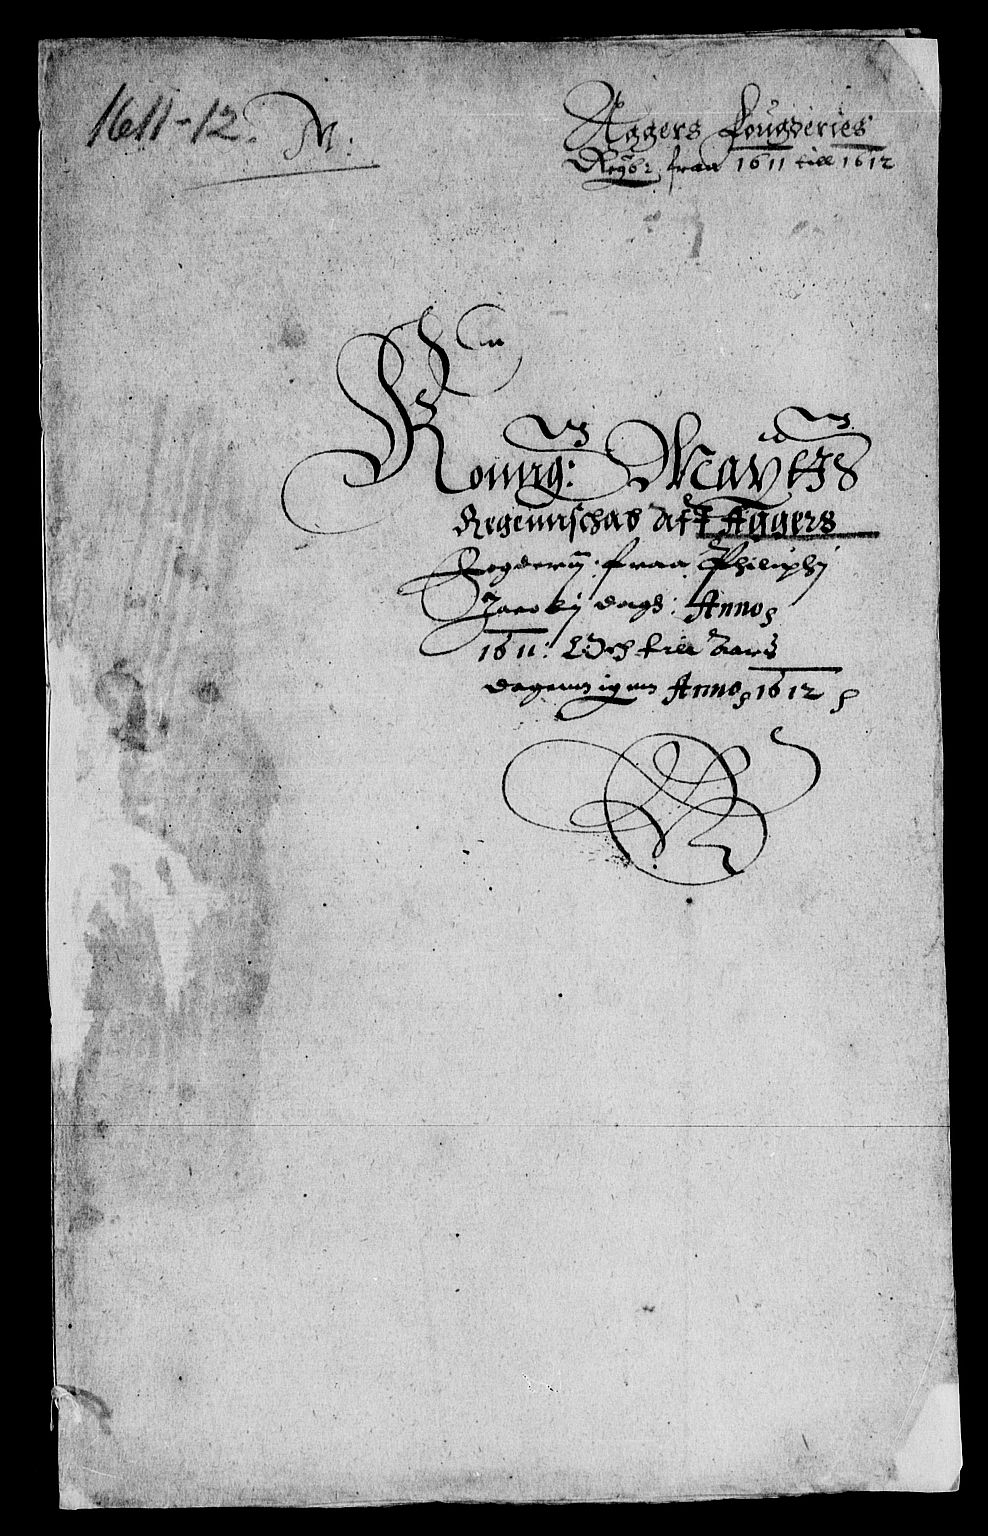 1611-12. M:
Aggers Fougderies
Regsk: fraa 1611 till 1612
Konng: Maytts
Regennschab Aff Aggers
Fogderij: fraa Philiphj
Jacobj dags: Anno
1611: Och till Aars
dagenn igenn Anno 1612